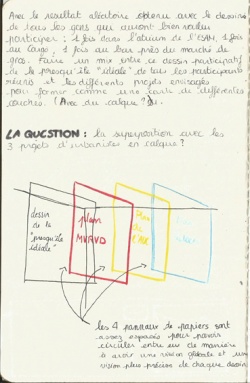 Avec le resultat aléatoire obtenu avec le dessins
de tous les gens qui auront bien voulu
participer : 1 fois dans l'atrium de l'ESAN, 1 fois
au Cargo, 1 fois au bar près du marché de
gros. Faire un mix entre ce dessin participatif
de la presqu'île "idéale" de tous les participants
réunis et les différents projets envisagés
pour former comme une carte de différentes
couches. (Avec du calque ?)
LA QUESTION : la superposition avec les
3 projets d'urbanistes en calque ?
dessin
de la
"presqu'île
idéale"
plan
MVRVD
plan
de
les 4 panneaux de papiers sont
assez espacés pour pouvoir
circuler entre eux de manière
à avoir une vision globale et une
vision plus précise de chaque dessin